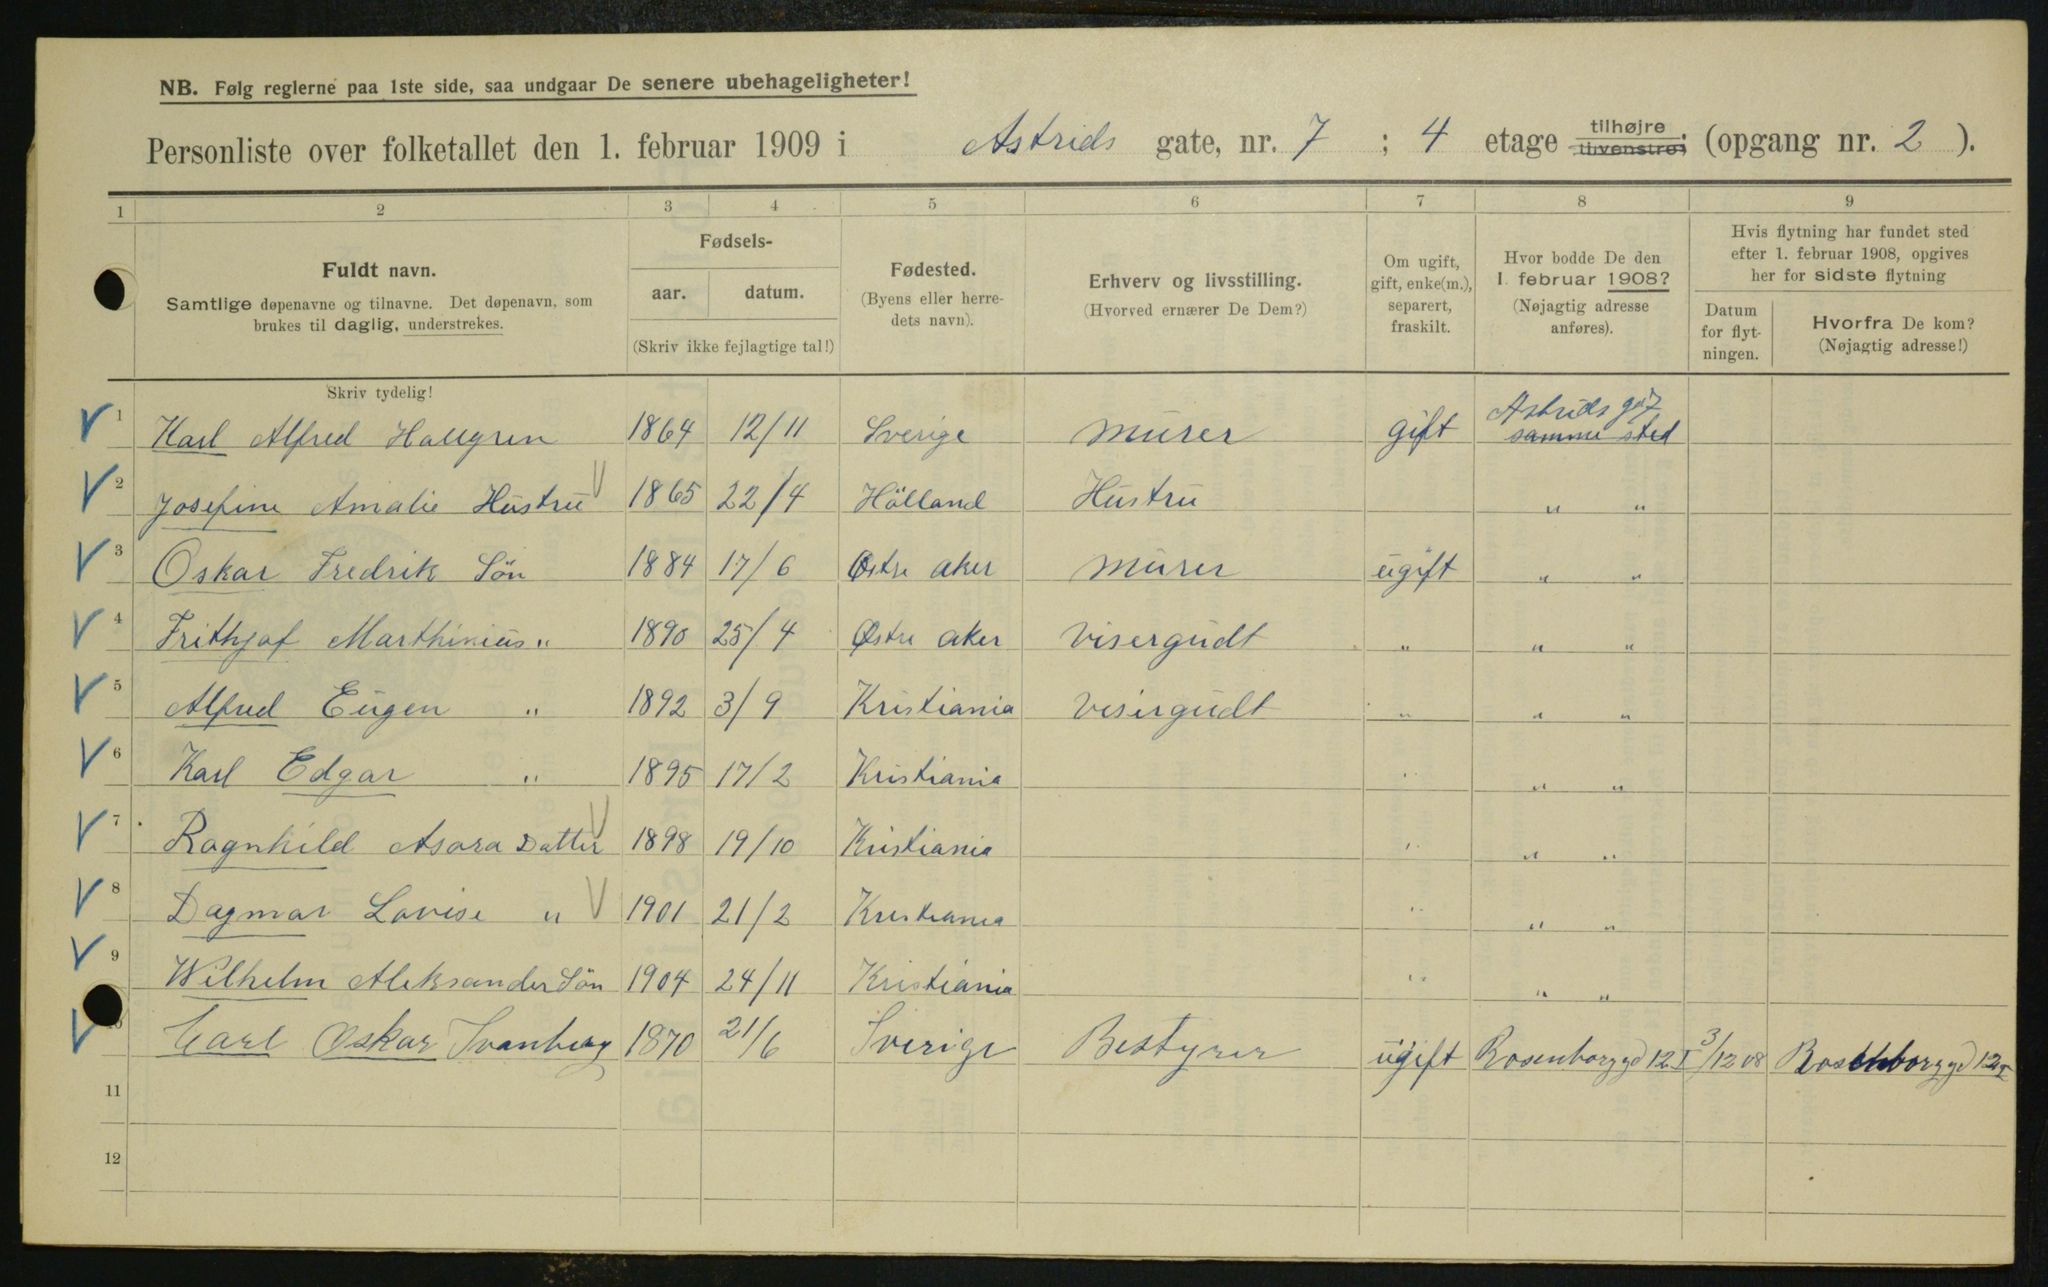 NB. Følg reglerne paa 1ste side, saa undgaar De senere ubehageligheter!
Personliste over folketallet den 1. februar 1909 i Astrids gate, nr. 7 ; 4 etage tilhøjre tilvenstre; (opgang nr. 2 ).
1 2 3 4 5 6 7 8 9
Fuldt navn.
Samtlige døpenavne og tilnavne. Det døpenavn, som
brukes til daglig, understrekes.
Fødsels-
aar. datum.
(Skriv ikke fejlagtige tal!)
Fødested.
(Byens eller herre-
dets navn).
Erhverv og livsstilling.
(Hvorved ernærer De Dem?)
Om ugift,
gift, enke(m.),
separert,
fraskilt.
Hvor bodde De den
1. februar 1908?
(Nøjagtig adresse
anføres).
Hvis flytning har fundet sted
efter 1. februar 1908, opgives
her for sidste flytning
Datum
for flyt-
ningen.
Hvorfra De kom?
(Nøjagtig adresse!)
Skriv tydelig!
1 Karl Alfred Hallgren 1864 12/11 Sverige Murer gift Astrids g. 7 samme sted
2 Josefine Amalie Hustru 1865 22/4 Hölland Hustru " "
3 Oskar Fredrik Sön 1884 17/6 Østre aker Murer ugift " "
4 Frithjof Marthinius " 1890 25/4 Østre aker Visergudt " " "
5 Alfred Eugen " 1892 3/9 Kristiania Visergudt " " "
6 Karl Edgar " 1895 17/2 Kristiania " " "
7 Ragnhild Asora Datter 1898 19/10 Kristiania " " "
8 Dagmar Lovise " 1901 21/2 Kristiania " " "
9 Wilhelm Aleksander Sön 1904 24/11 Kristiania " " "
10 Carl Oskar Svanberg 1870 21/6 Sverige Bestyrer ugift Rosenborggd 12 I 3/12 08 Rosenborggd 12 I
11
12